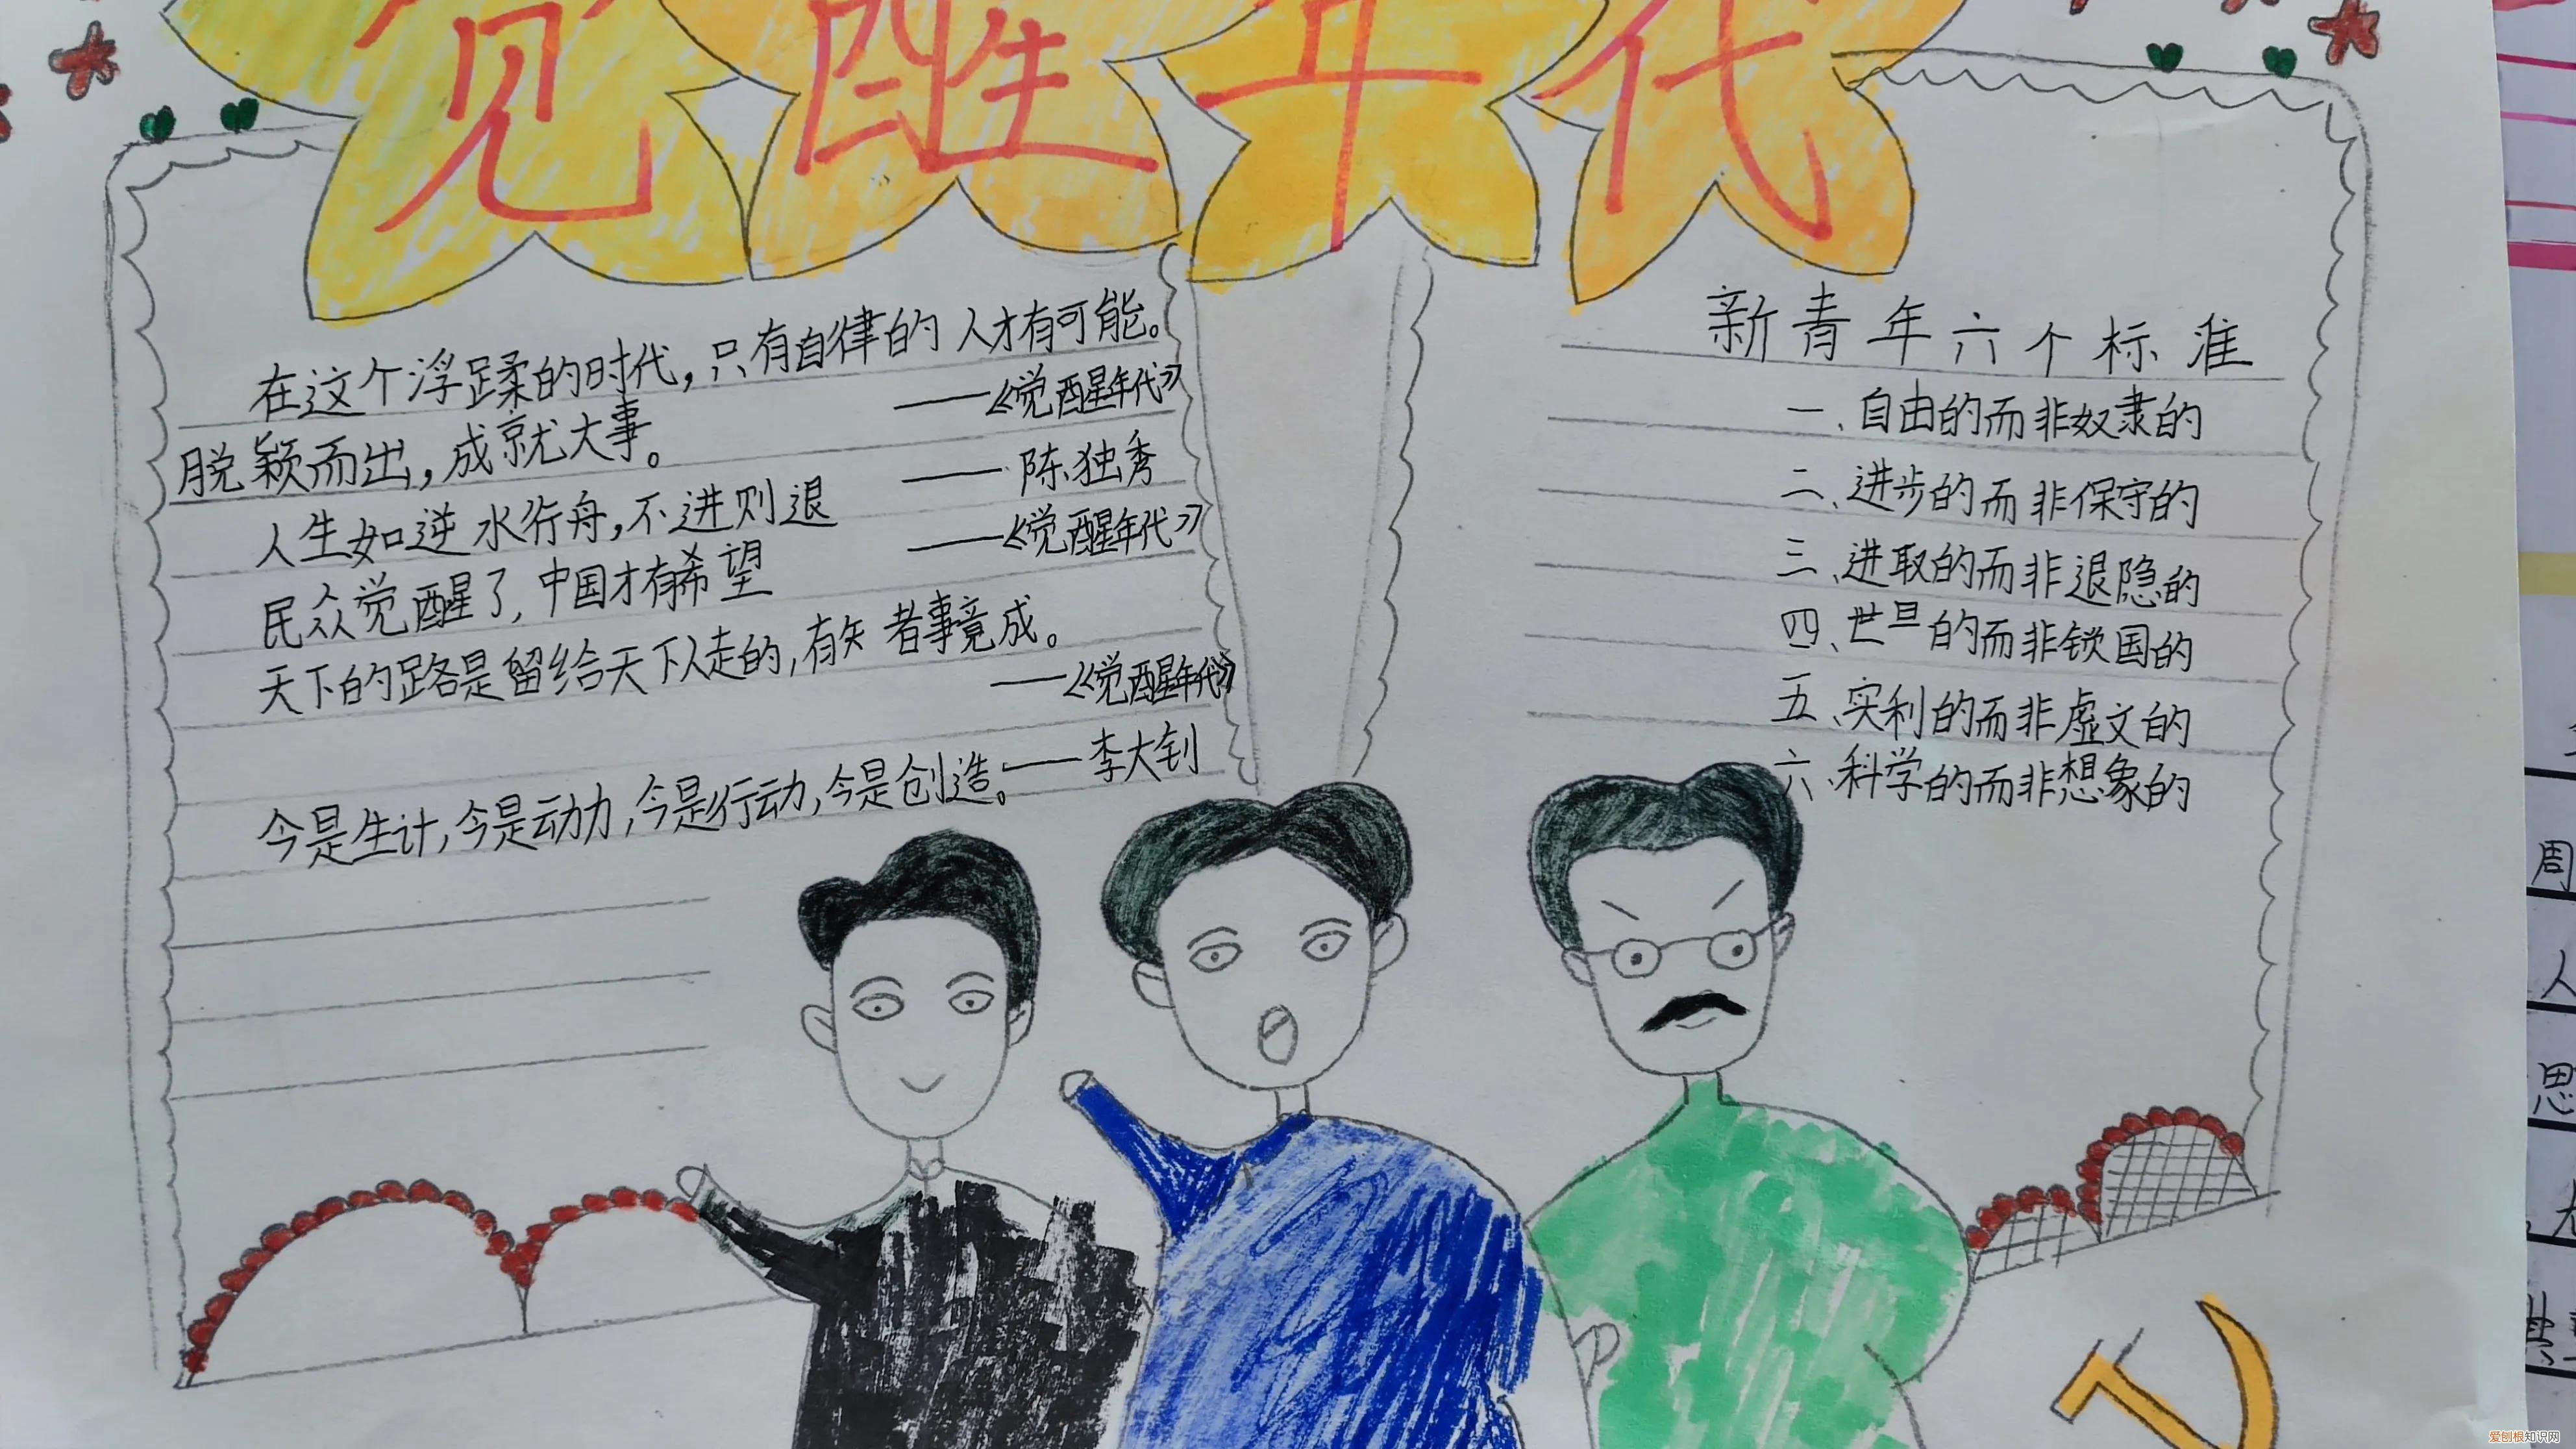 觉醒年代
在这个浮蹂的时代，只有自律的人才有可能。
——《觉醒年代》
脱颖而出，成就大事。
——陈独秀
人生如逆水行舟，不进则退
——《觉醒年代》
民众觉醒了，中国才有希望
天下的路是留给天下人走的，有矢者事竟成。
——《觉醒年代》
今是生计，今是动力，今是行动，今是创造。——李大钊
新青年六个标准
一、自由的而非奴隶的
二、进步的而非保守的
三、进取的而非退隐的
四、世旦的而非锁国的
五、实利的而非虚文的
六、科学的而非想象的
周
人
思
爱刨根知识网